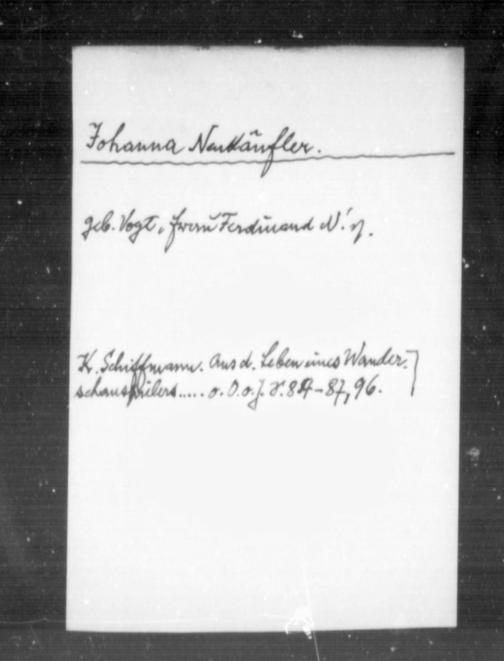 Johanna Neukäufler.
geb. Vogt, Frau Ferdinand N.'s.
K. Schiffmann. Aus d. Leben eines Wander-
schauspielers..... o. O. o. J. S. 84-87, 96.